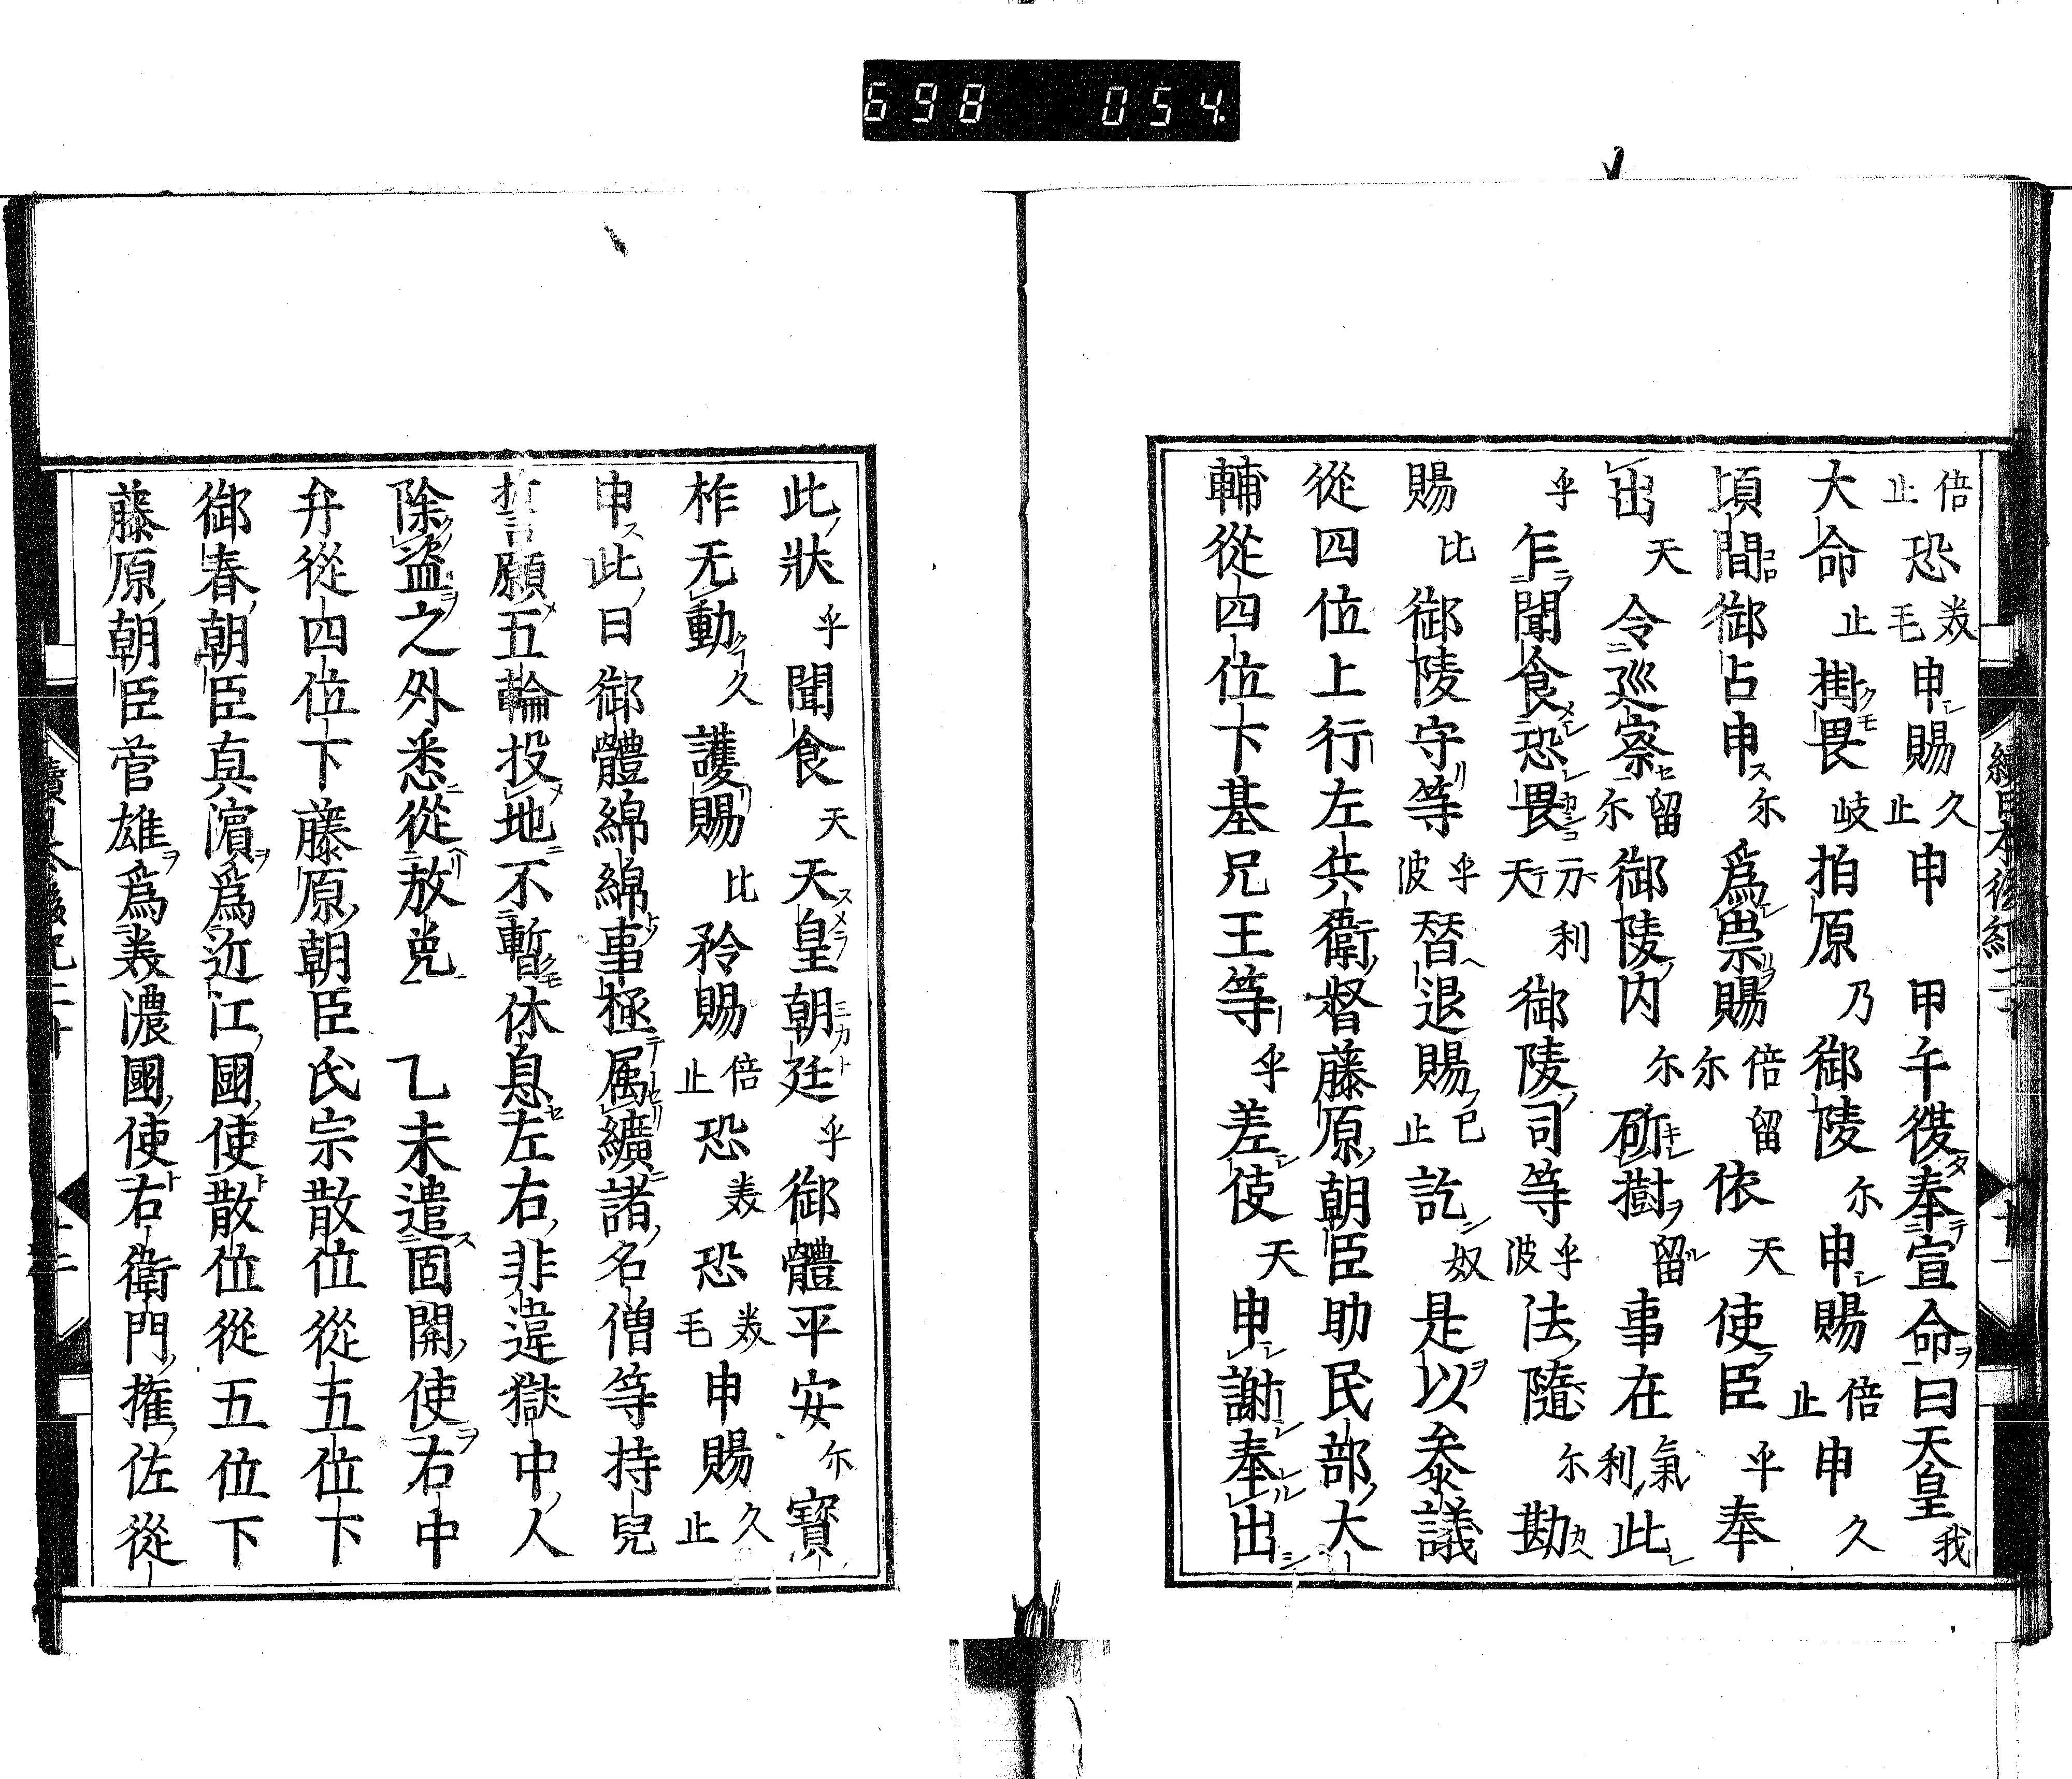 698 054.
倍止恐美毛申賜久止申 甲午復奉宣命曰天皇我
大命止掛畏岐柏原乃御陵尓申賜倍止申久
頃間御占申尓爲祟賜倍留尓依天使臣乎奉
出天令巡察留尓御陵内尓斫樹留事在氣利此
乎乍聞食恐畏天利御陵司等乎波法隨尓勘
賜比御陵守等乎波替退賜已止訖奴是以參議
從四位上行左兵衛督藤原朝臣助民部大
輔從四位下基兄王等乎差使天申謝奉出
此狀乎聞食天天皇朝廷乎御體平安尓寳
祚无動久護賜比矜賜倍止恐美恐美毛申賜久止
申此日御體綿綿事極属纊諸名僧等持咒
誓願五輪投地不暫休息左右非違獄中人
除盗之外悉從放免 乙未遣固關使右中
弁從四位下藤原朝臣氏宗散位從五位下
御春朝臣真濵爲近江國使散位從五位下
藤原朝臣菅雄爲美濃國使右衛門權佐從
續日本後紀二十 十一
續日本後紀二十 十二